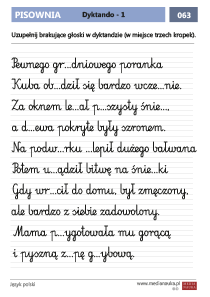 PISOWNIA Dyktando - 1 063
Uzupełnij brakujące głoski w dyktandzie (w miejsce trzech kropek).
Pewnego gr...dniowego poranka
Kuba ob...dził się bardzo wcze...nie.
Za oknem le...ał p...szysty śnie...,
a d...ewa pokryte były szronem.
Na podwó...rku ...lepił dużego bałwana
Potem u...ądził bitwę na śnie...ki
Gdy wr...cił do domu, był zmęczony,
ale bardzo z siebie zadowolony.
Mama p...ygotowała mu gorącą
i pyszną z...pę g...ybową.
Język polski www.medianauka.pl